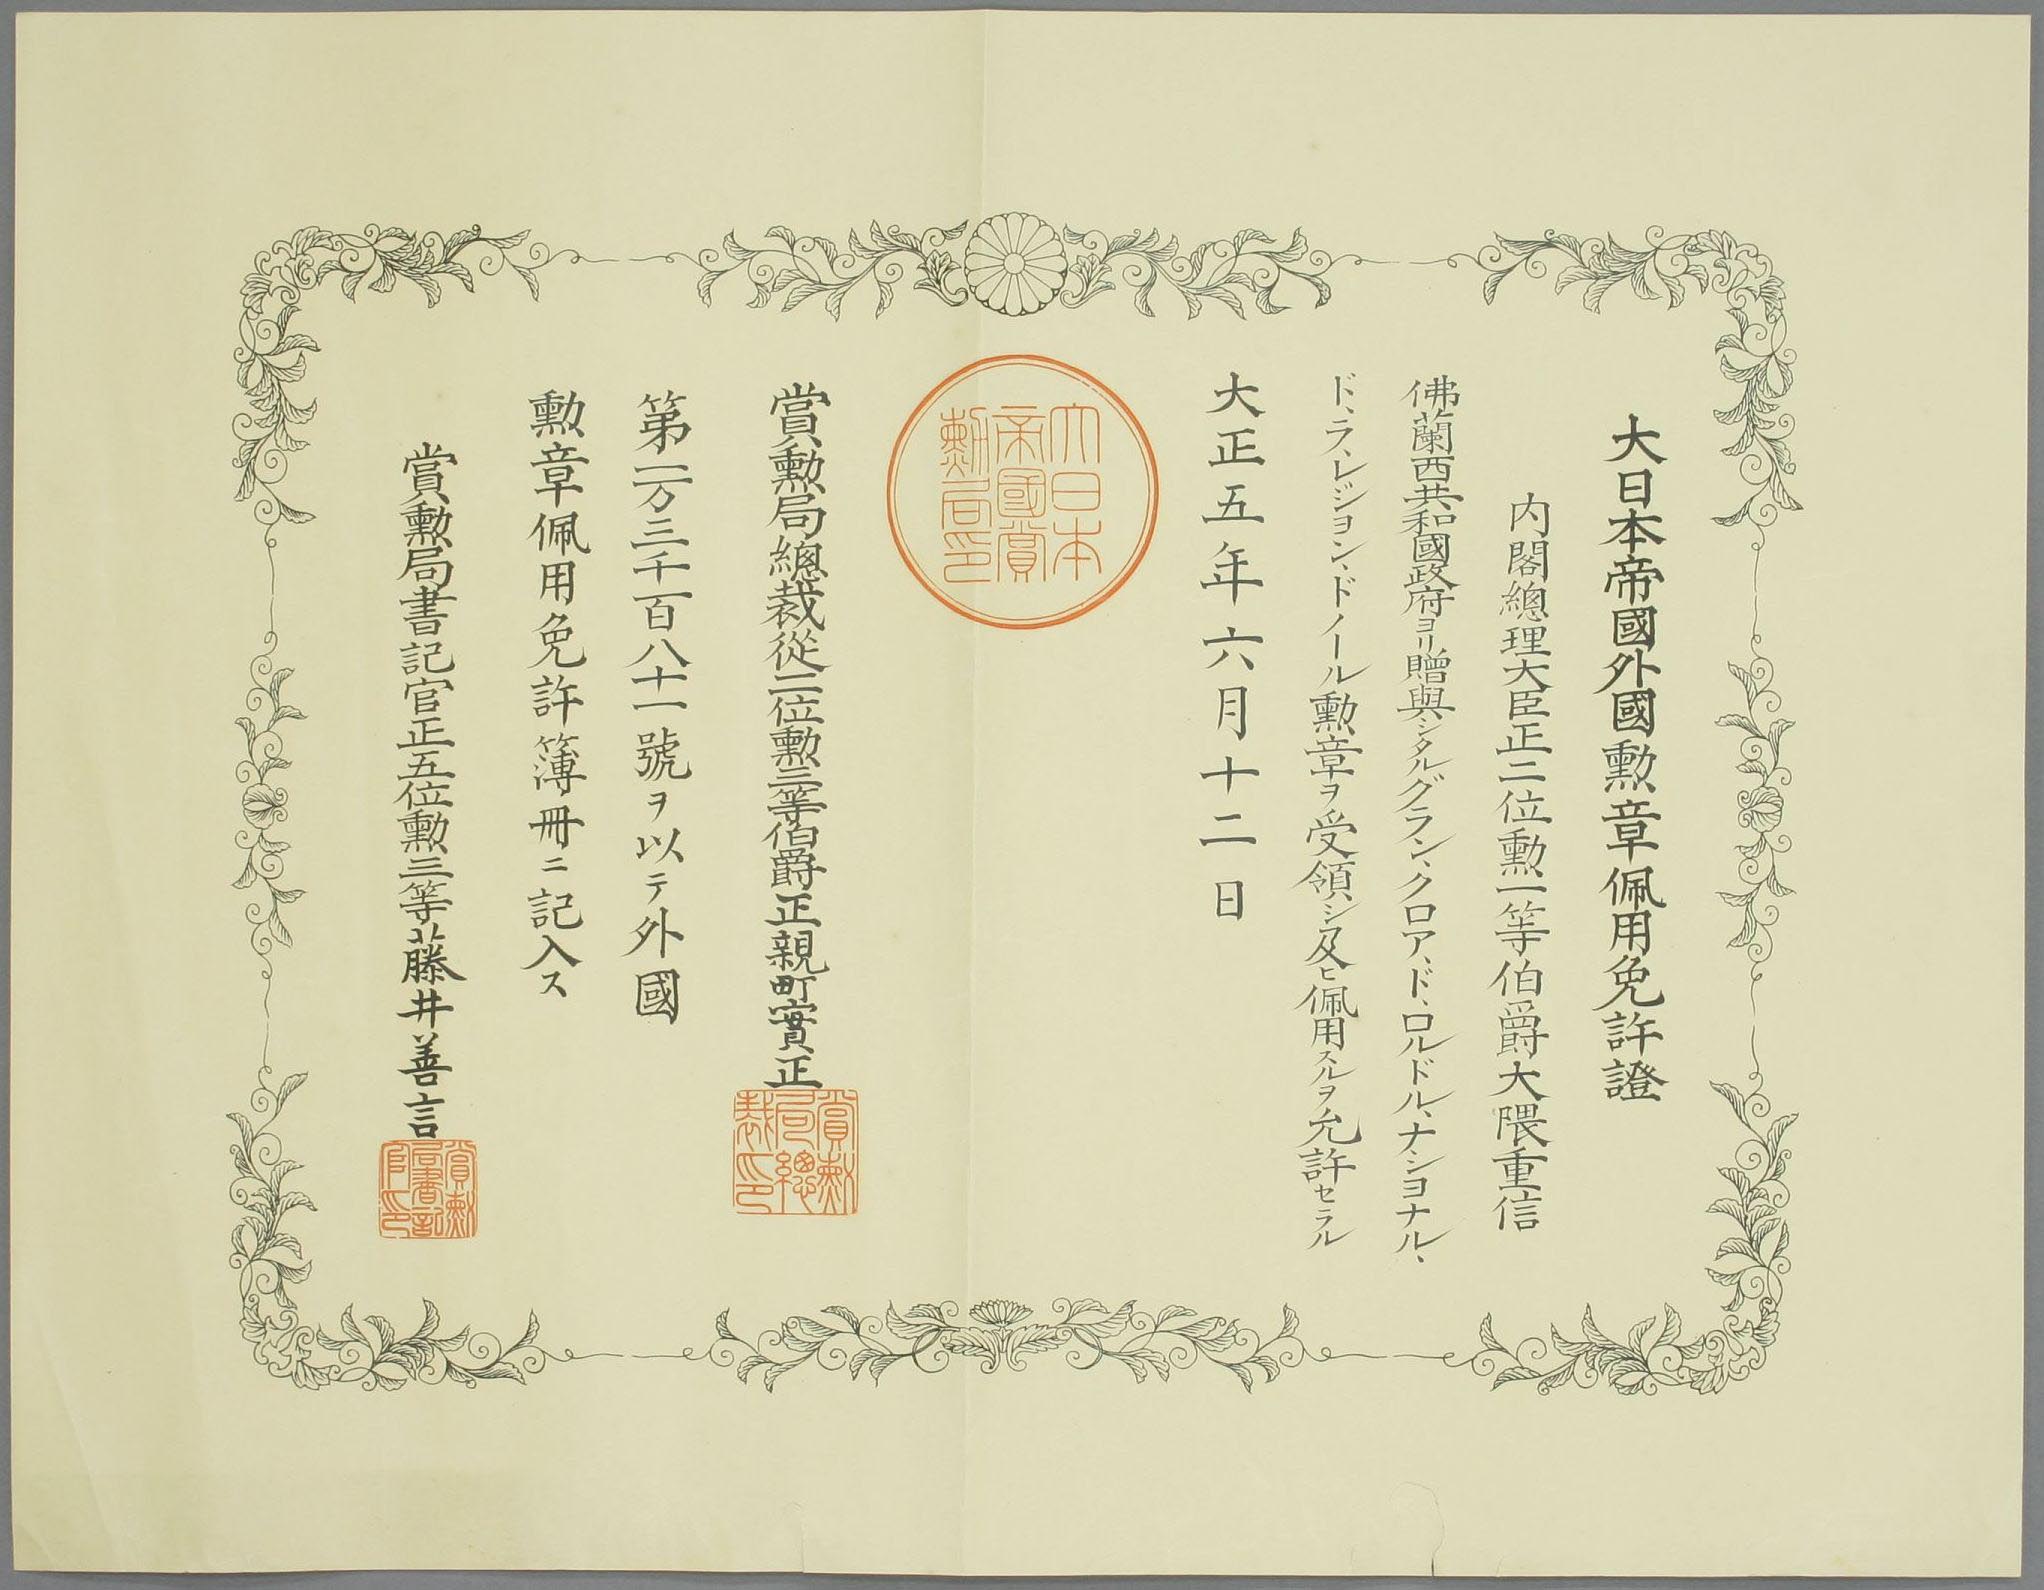 大日本帝國外國勲章佩用免許證
内閣總理大臣正二位勲一等伯爵大隈重信
佛蘭西共和國政府ヨリ贈與シタルグラン、クロア、ド、ロルドル、ナシヨナル、
ド、ラ、レジヨン、ドノール勲章ヲ受領シ及ヒ佩用スルヲ允許セラル
大正五年六月十二日
大日本
帝國賞
勲局印
賞勲局總裁從二位勲三等伯爵正親町實正
賞勲
局總
裁印
第二万三千百八十一號ヲ以テ外國
勲章佩用免許簿冊ニ記入ス
賞勲局書記官正五位勲三等藤井善言
賞勲
局書記
官印